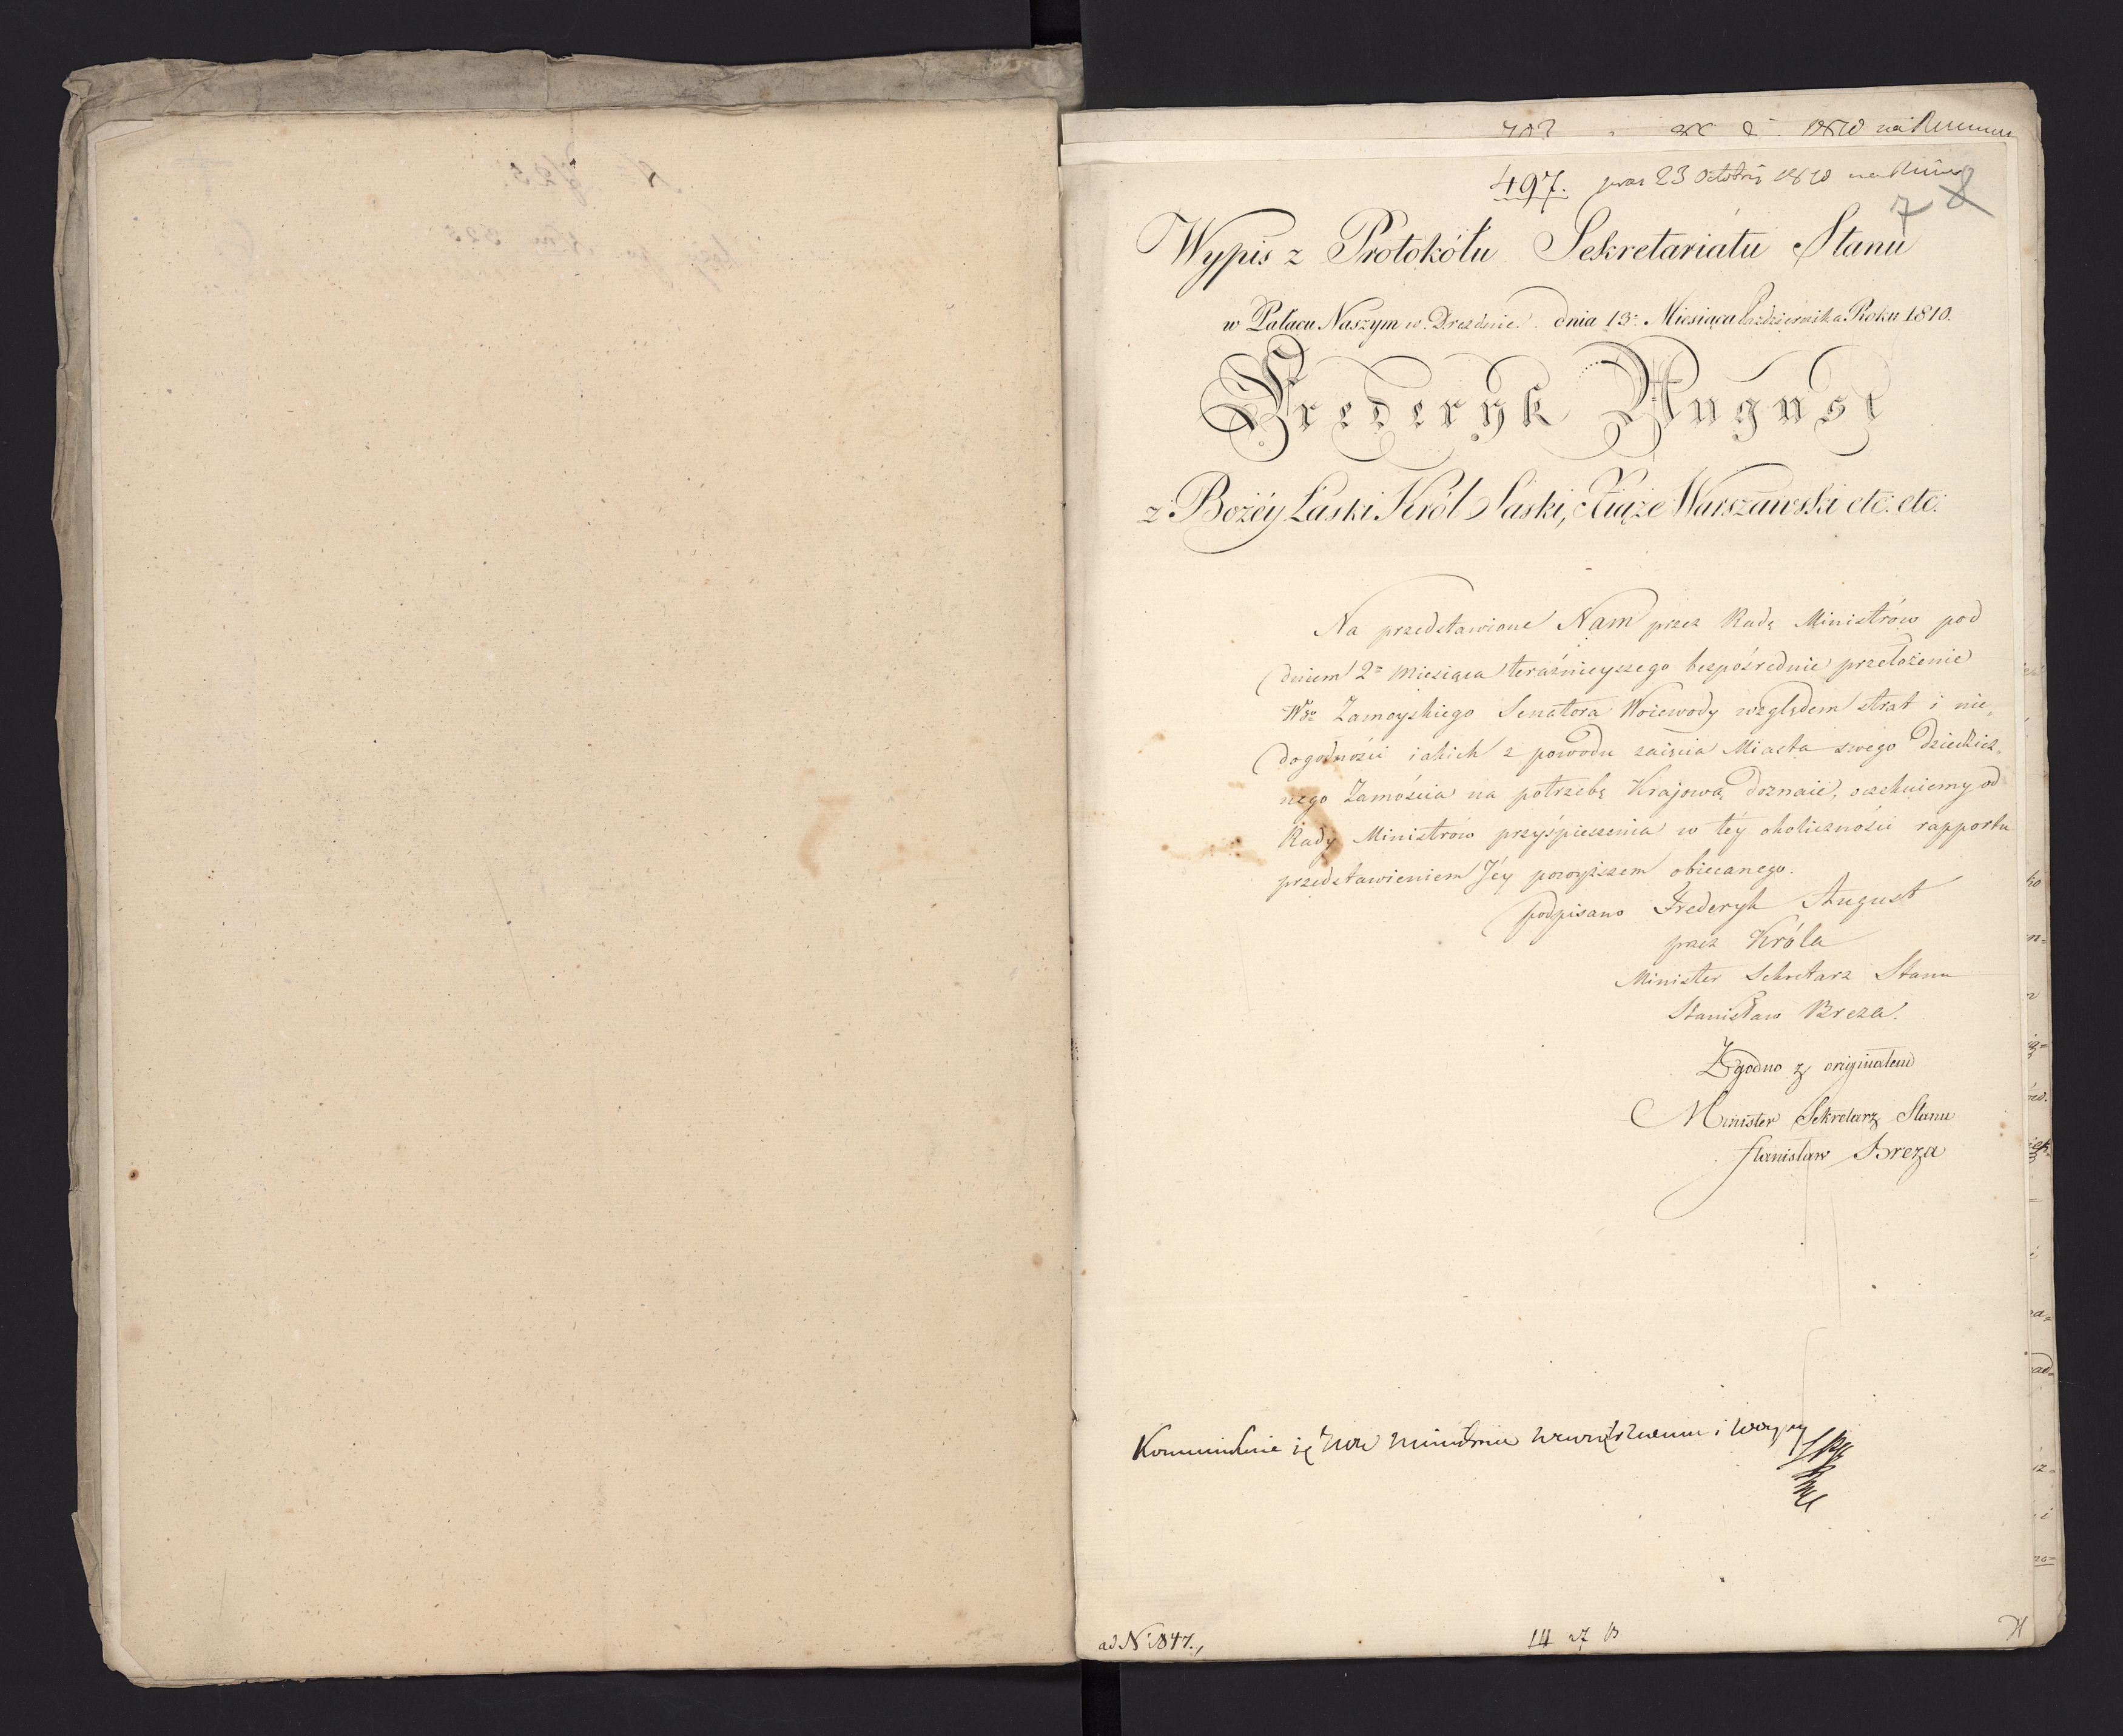 497. pras 23 Octobris 1810
7 8
Wypis z Protokółu Sekretariatu Stanu
w Pałacu Naszym w Dreznie dnia 13º Miesiąca Października Roku 1810.
Fryderyk August
z Bożéy Łaski Król Saski, Xiąże Warszawski etc: etc:
Na przedstawione Nam przez Radę Ministrów pod
dniem 2º miesiąca teraźnieyszego bezpośrednie przełożenie
Wgo Zamoyskiego Senatora Woiewody względem strat i nie„
dogodności iakich z powodu zaięcia Miasta swego dziedzicz„
nego Zamościa na potrzebę Krajową doznaie, oczekuiemy od
Rady Ministrów przyśpieszenia w téy okoliczności rapportu
przedstawieniem Jéy powyższem obiecanego.
podpisano Frederyk August
przez Króla
Minister Sekretarz Stanu
Stanisław Breza.
Zgodno z originałem
Minister Sekretarz Stanu
Stanisław Breza
i
ad Nº 1847.,
14